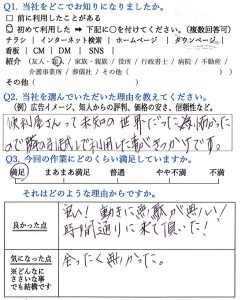 Q1. 当社をどこでお知りになりましたか。
□ 前に利用したことがある
☑ 初めて利用した ➡ 下記に○を付けてください。(複数回答可)
チラシ | インターネット検索 | ホームページ | タウンページ
看板 | CM | DM | SNS |
紹介 (友人・知人 / 家族・親族 / 役所 / 行政書士 / 病院 / 不動産 /
介護事業所 / 葬儀社 / その他( ))
その他( )
Q2. 当社を選んでいただいた理由を教えてください。
(例) 広告イメージ、知人からの評判、価格の安さ、信頼性など。
便利屋さんって未知の世界だった為怖かった
ので 隣の引越しで利用した事がきっかけです。
Q3. 今回の作業にどのくらい満足していますか。
満足 まあまあ満足 普通 やや不満 不満
それはどのような理由からですか。
良かった点
早い! 動きに無駄が無い!
時間通りに来て頂いた!
気になった点
※どんなに
ささいな事
でも結構です
全ったく無かった。